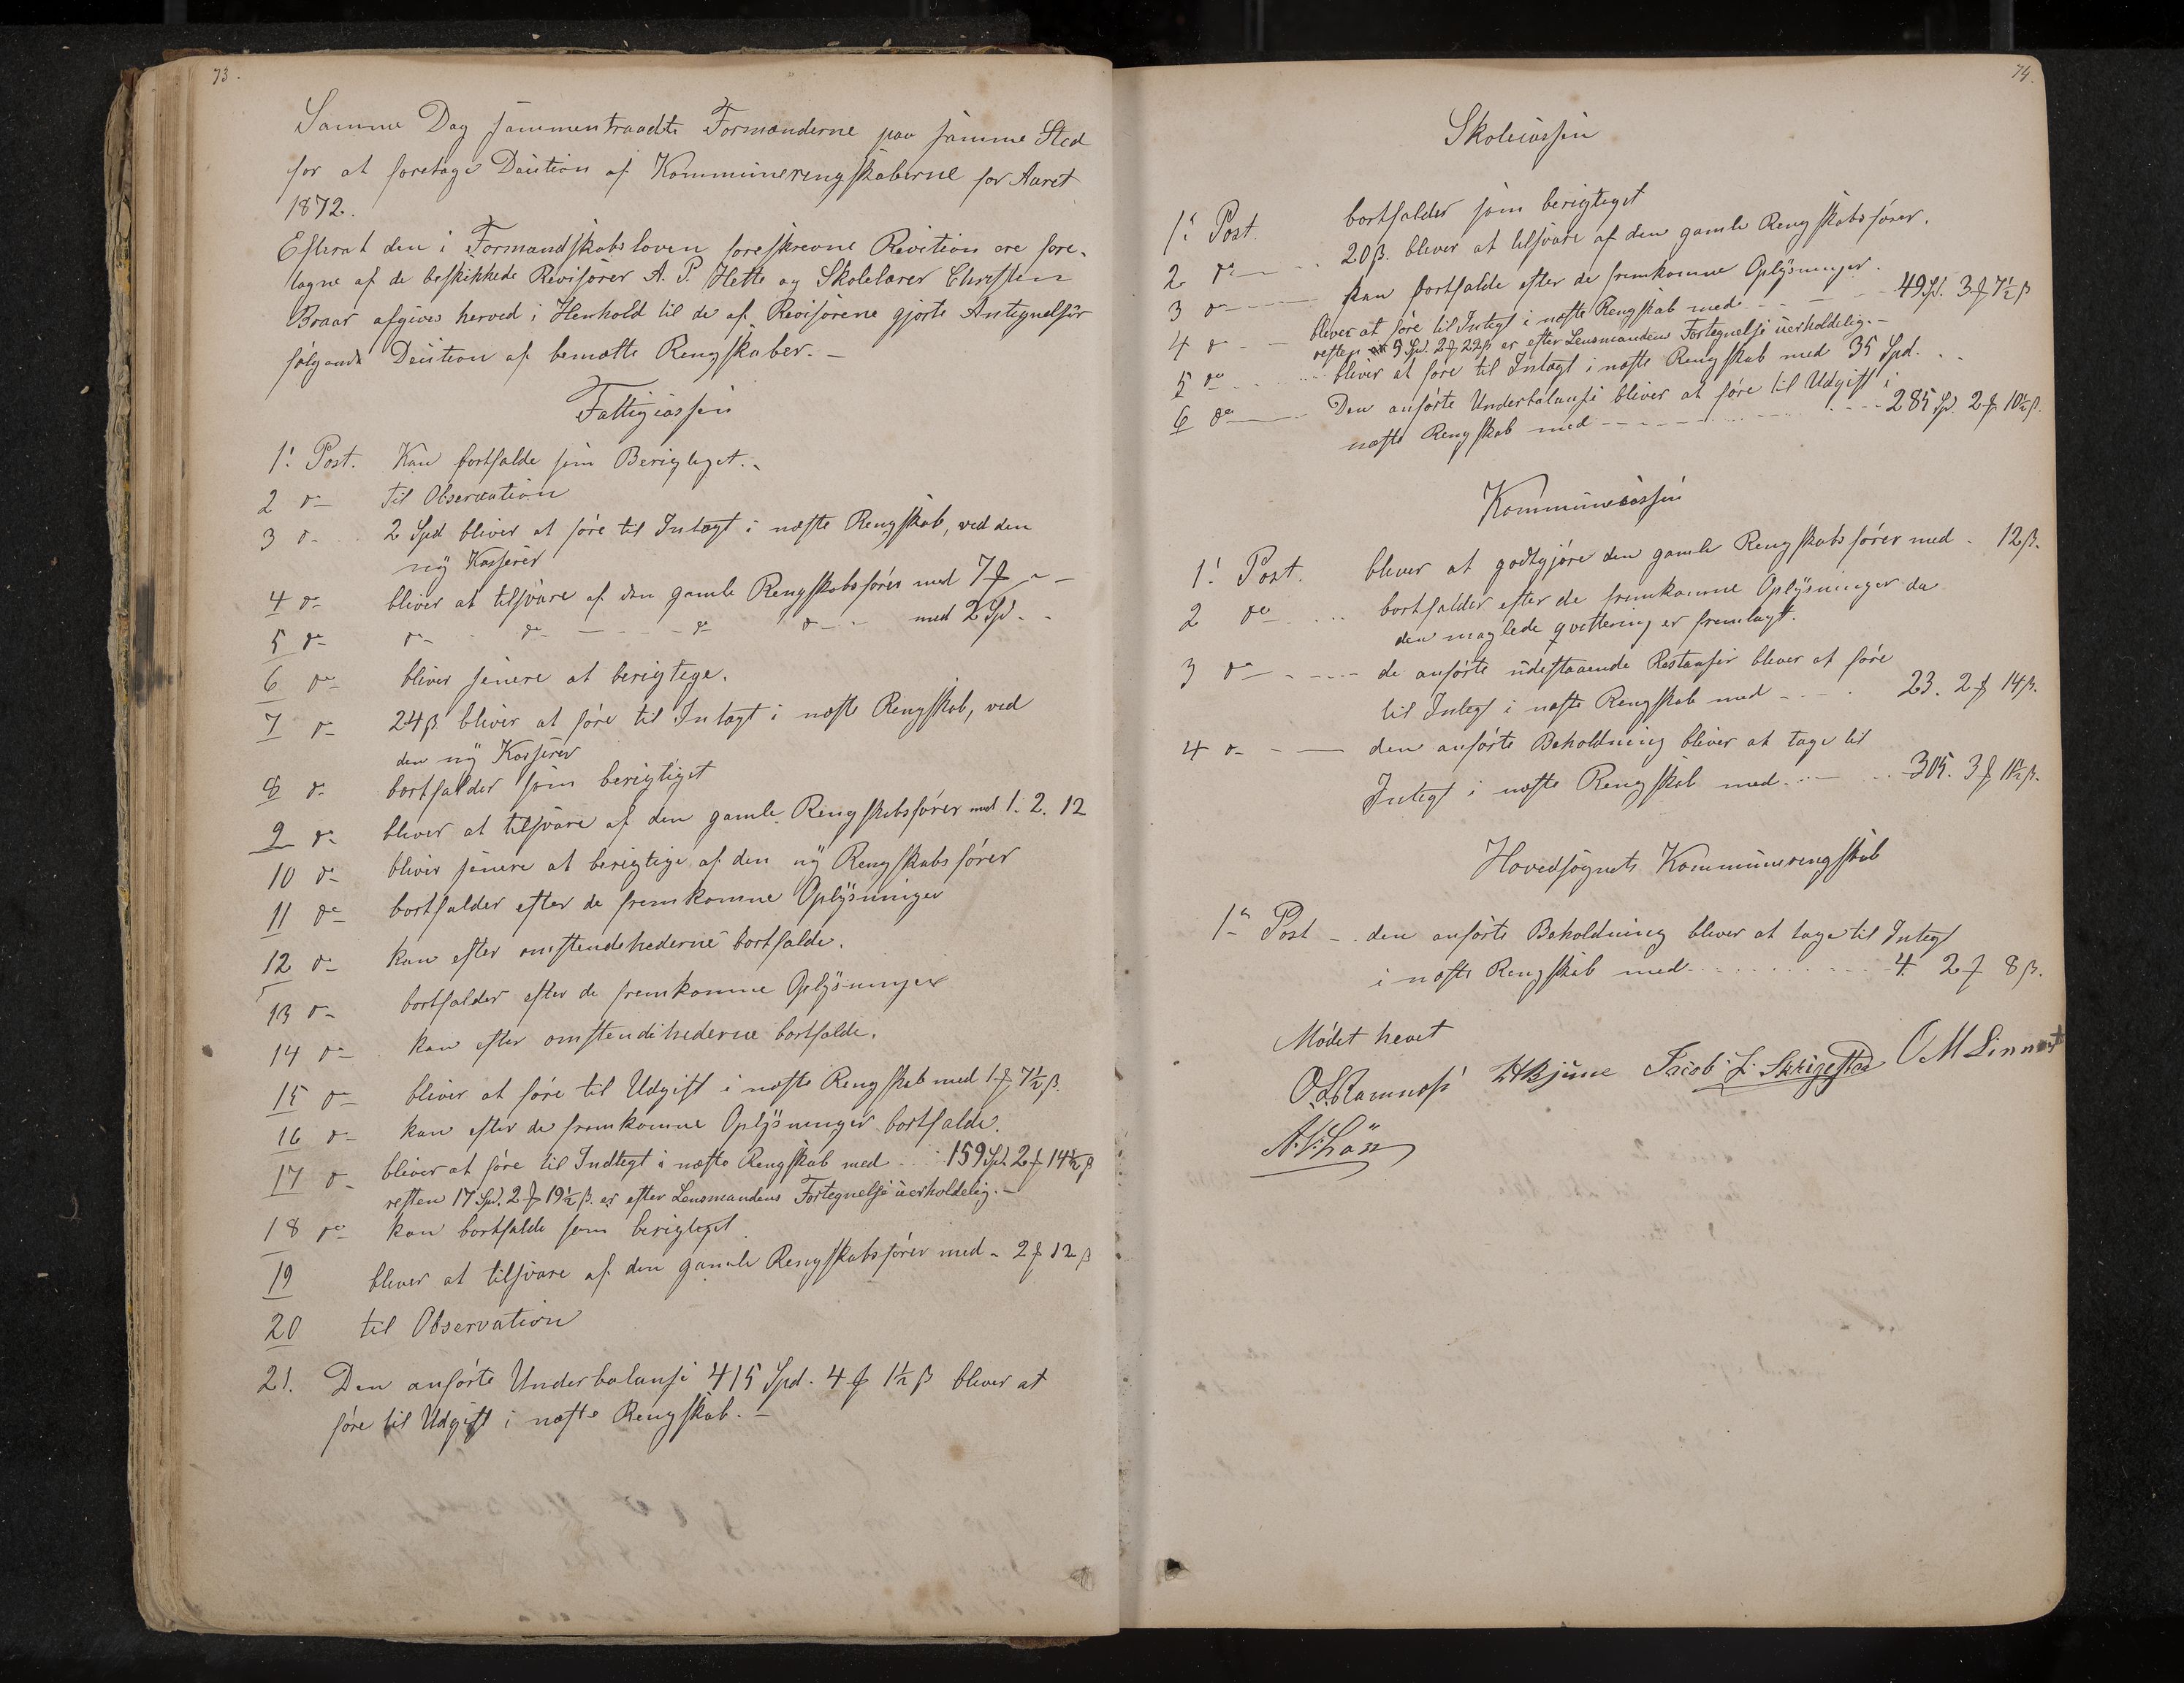 73.
Samme Dag sammentraadte Formænderne paa samme Sted
for at foretage Decition af Kommuneregnskaberne for Aaret
1872.
Efterat den i Formandskabsloven foreskrevne Revition ere fore-
tagne af de beskikkede Revisorer A. P. Hette og Skolelærer Christen
Braar afgives herved i Henhold til de af Revisorene gjorte Antegnelser
følgende Decition af bemælte Rengskaber. –
Fattigcassen
1ste Post. Kan bortfalde som Berigtiget. -
2 do Til Observation
3 do 2 Spd bliver at føre til Intægt i næste Rengskab, ved den
ny Kasserer
4 do bliver at tilsvare af den gamle Rengskabsfører med 7 ƒ - -
5 do do - do - - - do do - - med 2 Sp. - -
6 do bliver senere at berigtige.
7 do 24 β bliver at føre til Intægt i næste Rengskab, ved
den ny Kasserer
8 do bortfalder som berigtiget
9 do bliver at tilsvare af den gamle Rengskabsfører med 1. 2. 12
10 do bliver senere at berigtige af den ny Rengskabsfører
11 do bortfalder efter de fremkomne Oplysninger
12 do kan efter omstendihederne bortfalde.
13 do bortfalder efter de fremkomne Oplysninger
14 do kan efter omstendihederne bortfalde.
15 do bliver at føre til Udgift i næste Rengskab med 1 ƒ 7½ β.
16 do kan efter de fremkomne Oplysninger bortfalde.
17 do bliver at føre til Indtegt i næste Rengskab med . . 159 Spd. 2 ƒ 14½ β
resten 17 Spd. 2 ƒ 19½ β. er efter Lensmandens Fortegnelse uerholdelig. –
18 do kan bortfalde som berigtiget
19 bliver at tilsvare af den gamle Rengskabsfører med - 2 ƒ 12 β
20 til Observation
21. Den anførte Underbalanse 415 Spd. 4 ƒ 1½ β bliver at
føre til Udgift i næste Rengskab. –
74.
Skolecassen
1ste Post bortfalder som berigtiget
2 do - . . 20 β. bliver at tilsvare af den gamle Rengskabsfører.
3 do - - kan bortfalde efter de fremkomne Oplysninger.
4 do - - bliver at føre til Integt i næste Rengskab med - - - 49 Sp. 3 ƒ 7½ β
resten 5 Spd. 2 ƒ 22 β er efter Lensmandens Fortegnelse uerholdelig. –
5 do . . . . bliver at føre til Intægt i næste Rengskab med 35 Spd. . .
6 do - Den anførte Underbalanse bliver at føre til Udgift i
næste Rengskab med - - - - - - - 285 Sp. 2 ƒ 10½ β.
Kommunecassen
1ste Post. bliver at godtgjøre den gamle Rengskabsfører med - 12 β.
2 do . . . bortfalder efter de fremkomne Oplysninger da
den maglede qvittering er fremlagt.
3 do - - - - de anførte udestaaende Restanser bliver at føre
til Integt i næste Rengskab med - - - . 23. 2 ƒ 14 β.
4 do - - - den anførte Beholdning bliver at tage til
Integt i næste Rengskab med . . - . . 305. 3 ƒ 1½ β.
Hovedsognets Kommunerengskab
1ste Post - . den anførte Beholdning bliver at tage til Integt
i næste Rengskab med . . . . . . . . . 4 2 ƒ 8 β.
Mødet hevet
Jacob L: Skrigestad